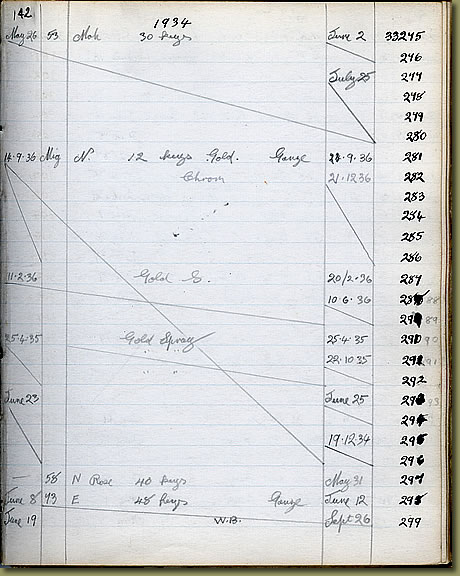 142
1934
May 26 53 Mah 30 keys June 2 33275
276
July 25 277
278
279
280
14.9.36 Mig N. 12 keys Gold. Gauze .9.36 281
Chrom 21.12.36 282
283
284
285
286
11.2.36 Gold S. 20/2.36 287
10.6.36 288 88
289 89
25.4.35 Gold Spray 25.4.35 290 90
" " 22.10.35 291 91
292
June 23 June 25 293 93
294
19.12.34 295
296
— 58 N Rose 40 keys May 31 297
June 8 73 E 48 keys Gauze June 12 298
June 19 W.B. Sept 26 299